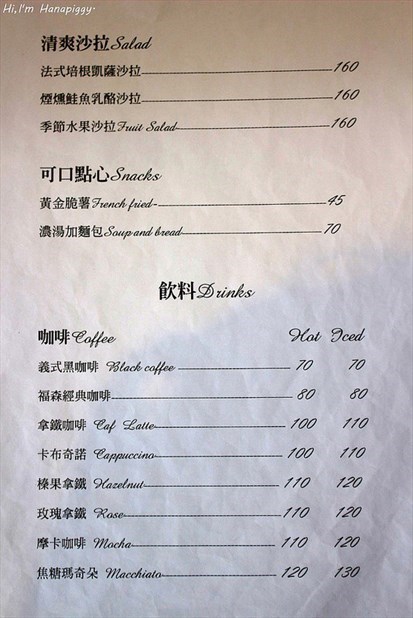 Hi, I'm Hanapiggy.
清爽沙拉Salad
法式培根凱薩沙拉 160
煙燻鮭魚乳酪沙拉 160
季節水果沙拉Fruit Salad 160
可口點心Snacks
黃金脆薯French fried 45
濃湯加麵包Soup and bread 70
飲料Drinks
咖啡Coffee Hot Iced
義式黑咖啡 Black coffee 70 70
福森經典咖啡 80 80
拿鐵咖啡 Caf Latte 100 110
卡布奇諾 Cappuccino 100 110
榛果拿鐵 Hazelnut 110 120
玫瑰拿鐵 Rose 110 120
摩卡咖啡 Mocha 110 120
焦糖瑪奇朵 Macchiato 120 130